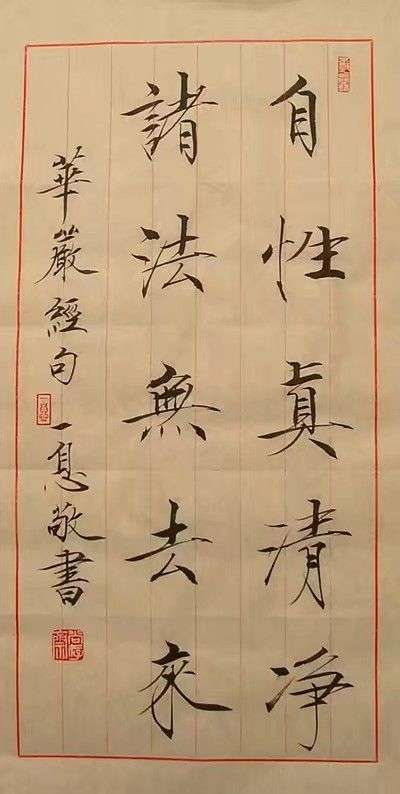 自性真清净
諸法無去來
華嚴經句 一息敬書